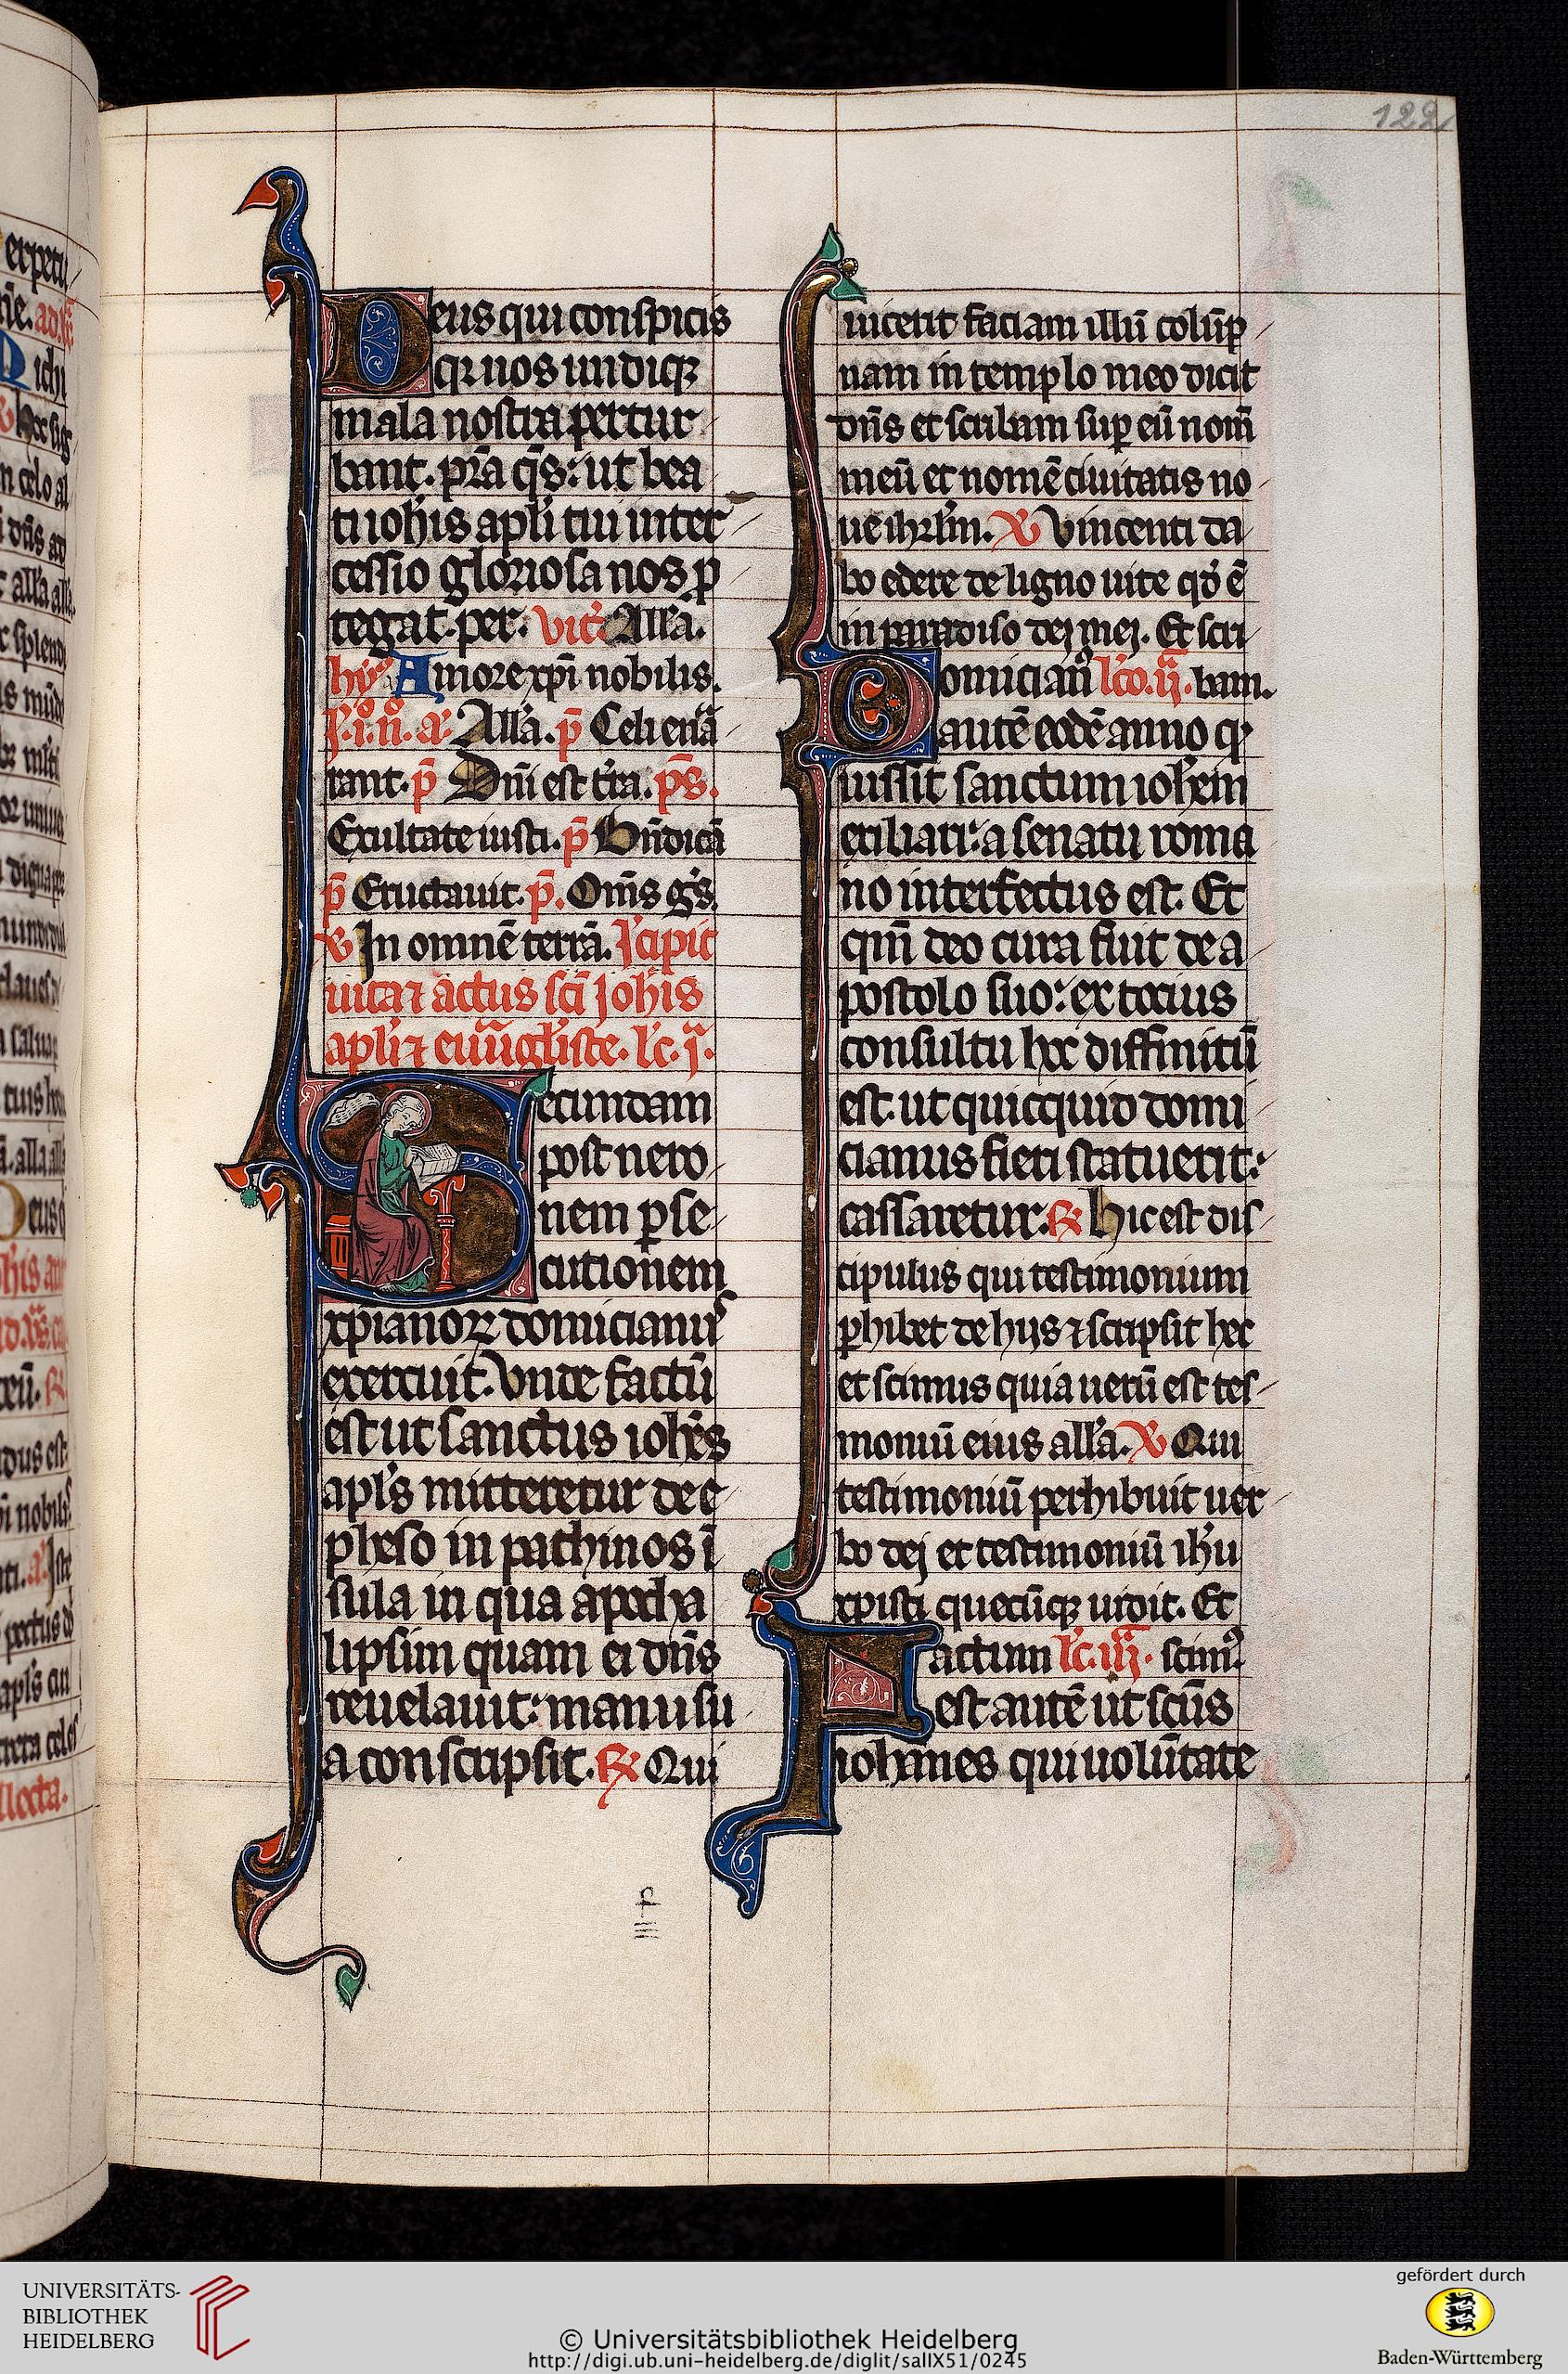 122
Deus qui conspicis
qr nos undiqꝫ
mala nostra pertur
bant. p̄ra q̄s: ut bea
ti ioh̄is apl̄i tui inter
cessio gloriosa nos p
tegat. per. Vic̄ All̄a.
hy Amore xp̄i nobilis.
I. i. n̄. a. All̄a. p̄ Celi enā
rant. p̄ Dn̄i est t̄ra. p̄s.
Exultate iusti. p̄ Bn̄dicā
p̄ Eructauit. p̄. Om̄s gs.
V In omnē terrā. Īcipit
uita ⁊ actus sc̄i Joh̄is
apl̄i ⁊ euūgl̄iste. l̄c. j.
Secundam
post nero
nem p̱se
cutionem
xp̄ianoꝝ domicianus
exercuit. Vnde factū
est ut sanctus ioh̄es
apl̄s mitteretur de e
pheso in pathmos ī
sula in qua apocha
lipsim quam ei dn̄s
reuelauit: manu su
a conscripsit. ℟ Qui
uicerit faciam illū colūp
nam in templo meo dicit
dn̄s et scribam sup̱ eū nom̄
meū et nomē ciuitatis no
ue ihrl̄m. V Vincenti da
bo edere de ligno uite qđ ē
in paradiso dej mej. Et scri
Domician l̄co. ij. bam.
autē eodē anno q
iussit sanctum ioh̄em
exiliari: a senatu roma
no interfectus est. Et
qm̄ deo cura fuit de a
postolo suo: ex tocius
consultu hoc diffinitū
est. ut quicquid domi
cianus fieri statuerit:
cassaretur. ℟ Hic est dis
cipulus qui testimonium
p̱hibet de hijs ⁊ scripsit hec
et scimus quia uerū est tes
moniū eius all̄a. V Qui
testimoniū perhibuit uer
bo dej et testimoniū ih̄u
xpisti quecūqꝫ uidit. Et
Factum l̄c. iij. scim᷒
est autē ut sc̄us
iohannes qui uolūtate
UNIVERSITÄTS-
BIBLIOTHEK
HEIDELBERG
© Universitätsbibliothek Heidelberg
http://digi.ub.uni-heidelberg.de/diglit/salIX51/0245
gefördert durch
Baden-Württemberg